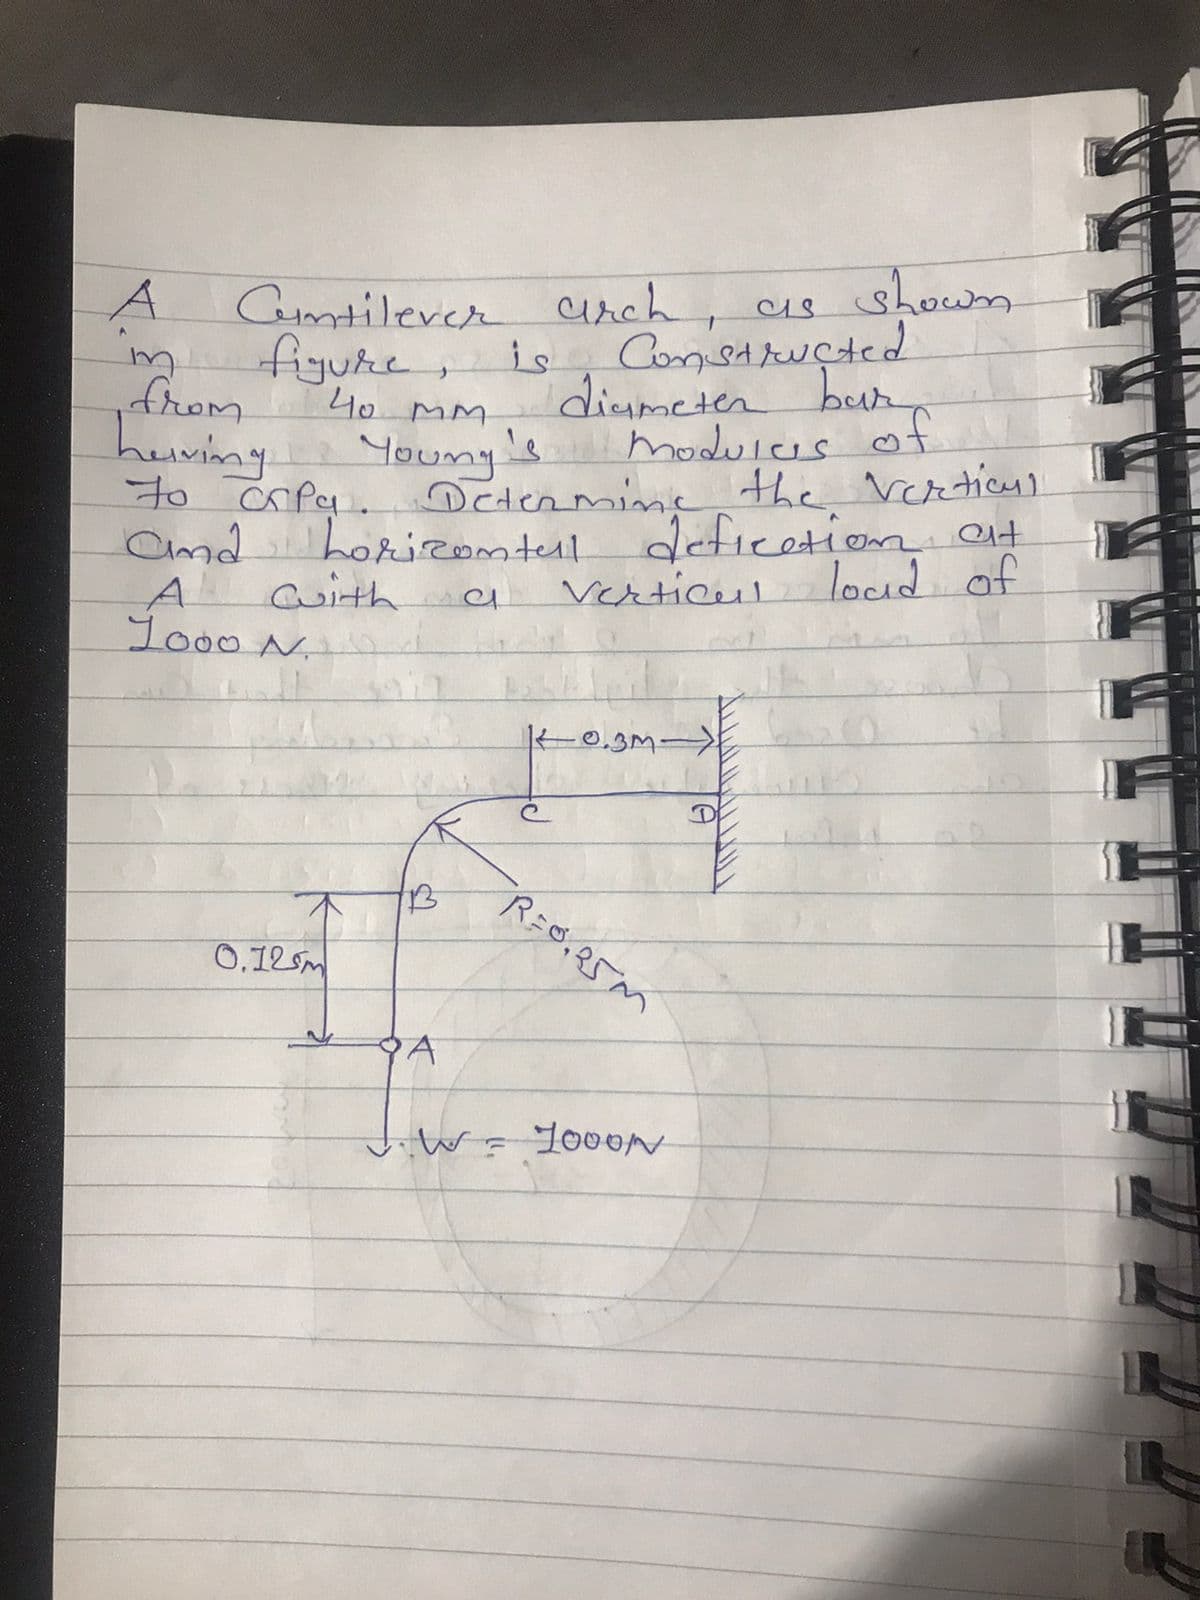 A Cantilever arch, as shown
in figure, is Constructed
from 40 mm diameter bar
having Young's modulus of
70 GPa. Determine the vertical
and horizontal deflection at
A with a vertical load of
1000 N.
0.3m
C D
B
R=0.25m
0.125m
A
W = 1000N